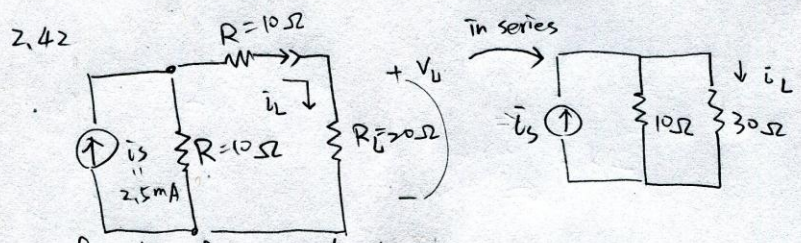 2.42
R=10Ω
in series
+ VL
iL
iL
is
"
2.5mA
R=10Ω
RL=20Ω
is
10Ω
30Ω
−